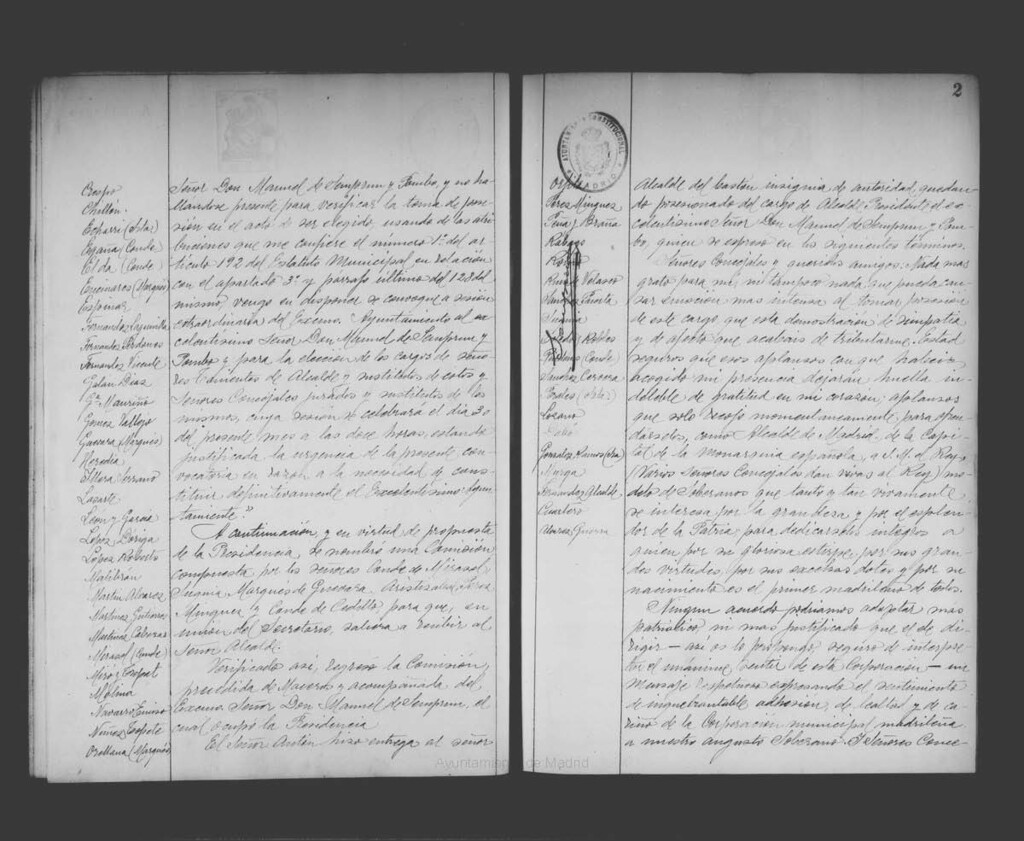 Crespo
Chillón
Echarri (Srta)
Egaña (Conde
Elda (Conde)
Encinares (Marqués)
Espinos
Fernández
Fernández Ródenas
Fernández Vicente
Galán Díaz
Gª Mauriño
Gómez Vallejo
Guevara (Marqués)
Heredia
Serrano
Lasarte
León y García
López Dóriga
López Roberts
Malibrán
Martín Alvarez
Martínez Gutiérrez
Martínez Cabezas
Mirasol (Conde)
Miró y Trepat
Molina
Navarro Enciso
Núñez Topete
Orellana (Marqués
Señor Don Manuel de Semprun y Pombo, y no ha-
llándose presente para verificar la toma de pose-
sión en el acto de ser elegido, usando de las atri-
buciones que me confiere el número 1º del ar-
tículo 192 del Estatuto Municipal en relación
con el apartado 3º y párrafo último del 123 del
mismo, vengo en disponer se convoque a sesión
extraordinaria del Excmo. Ayuntamiento al ex-
celentísimo Señor Don Manuel de Semprun y
Pombo y para la elección de los cargos de Seño-
res Tenientes de Alcalde y sustitutos de estos y
Señores Concejales jurados y sustitutos de los
mismos, cuya sesión se celebrará el día 30
del presente mes a las doce horas, estando
justificada la urgencia de la presente con-
vocatoria en razón a la necesidad de cons-
tituir definitivamente el Excelentísimo Ayun-
tamiento."
A continuación, y en virtud de propuesta
de la Presidencia, se nombró una Comisión
compuesta por los señores Conde de Mirasol,
Marqués de Guevara, Pérez
Mínguez y Conde de Cedillo, para que, en
unión del Secretario, saliera a recibir al
Señor Alcalde.
Verificado así, regresó la Comisión,
precedida de Maceros y acompañada del
Excmo. Señor Don Manuel de Semprun, el
cual ocupó la Presidencia
El Señor Antón hizo entrega al señor
2
AYUNTAMIENTO CONSTITUCIONAL
MADRID
Pérez Mínguez
Peña y Braña
Ruiz de Velasco
Sánchez Cervera
Lozano
Murga
Fernández Alcalde
Cuartero
Alvarez Guerra
Alcalde del bastón insignia de autoridad, quedan-
do posesionado del cargo de Alcalde Presidente, el ex-
celentísimo Señor Don Manuel de Semprun y Pom-
bo, quien se expresó en los siguientes términos.
Señores Concejales y queridos amigos: Nada mas
grato para mí, ni tampoco nada que pueda cau-
sar emoción mas intensa al tomar posesión
de este cargo, que esta demostración de simpatía
y de afecto que acabais de tributarme. Estad
seguros que esos aplausos con que habeis
acogido mi presencia dejarán huella in-
deleble de gratitud en mi corazón; aplausos
que solo recojo momentáneamente, para ofren-
dárselos, como Alcalde de Madrid, de la Capi-
tal de la monarquía española, a S. M. el Rey
(Varios Señores Concejales dan vivas al Rey) mo-
delo de Soberanos que tanto y tan vivamente
se interesa por la grandeza y por el esplen-
dor de la Patria, para dedicárselos íntegros a
quien por su gloriosa estirpe, por sus gran-
des virtudes, por sus excelsas dotes y por su
nacimiento es el primer madrileño de todos.
Ningun acuerdo podríamos adoptar mas
patriótico, ni mas justificado que el de di-
rigir — así os lo propongo, seguro de interpre-
tar el unánime sentir de esta Corporación — un
Mensaje respetuoso expresando el sentimiento
de inquebrantable adhesión, de lealtad y de ca-
riño de la Corporación municipal madrileña
a nuestro augusto Soberano. Y Señores Conce-
Ayuntamiento de Madrid